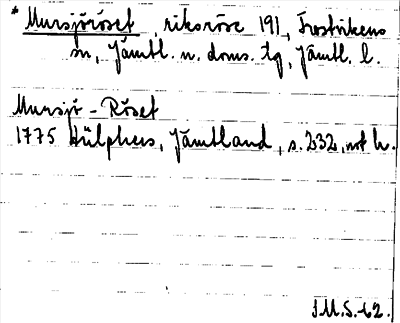 * Mursjöröset, riksröse 191, Frostvikens
sn, Jämtl. n. doms. tg, Jämtl. l.
Mursjö-Röset
1775 Hülphers, Jämtland, s. 232, not h.
I.M.S. -62.